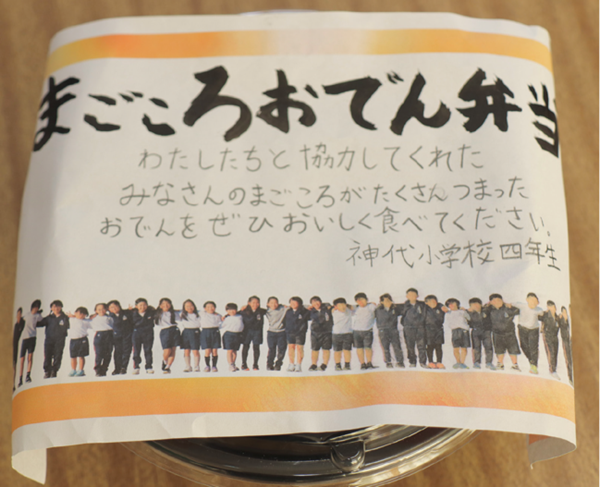 まごころおでん弁当
わたしたちと協力してくれた
みなさんのまごころがたくさんつまった
おでんをぜひおいしく食べてください。
神代小学校四年生